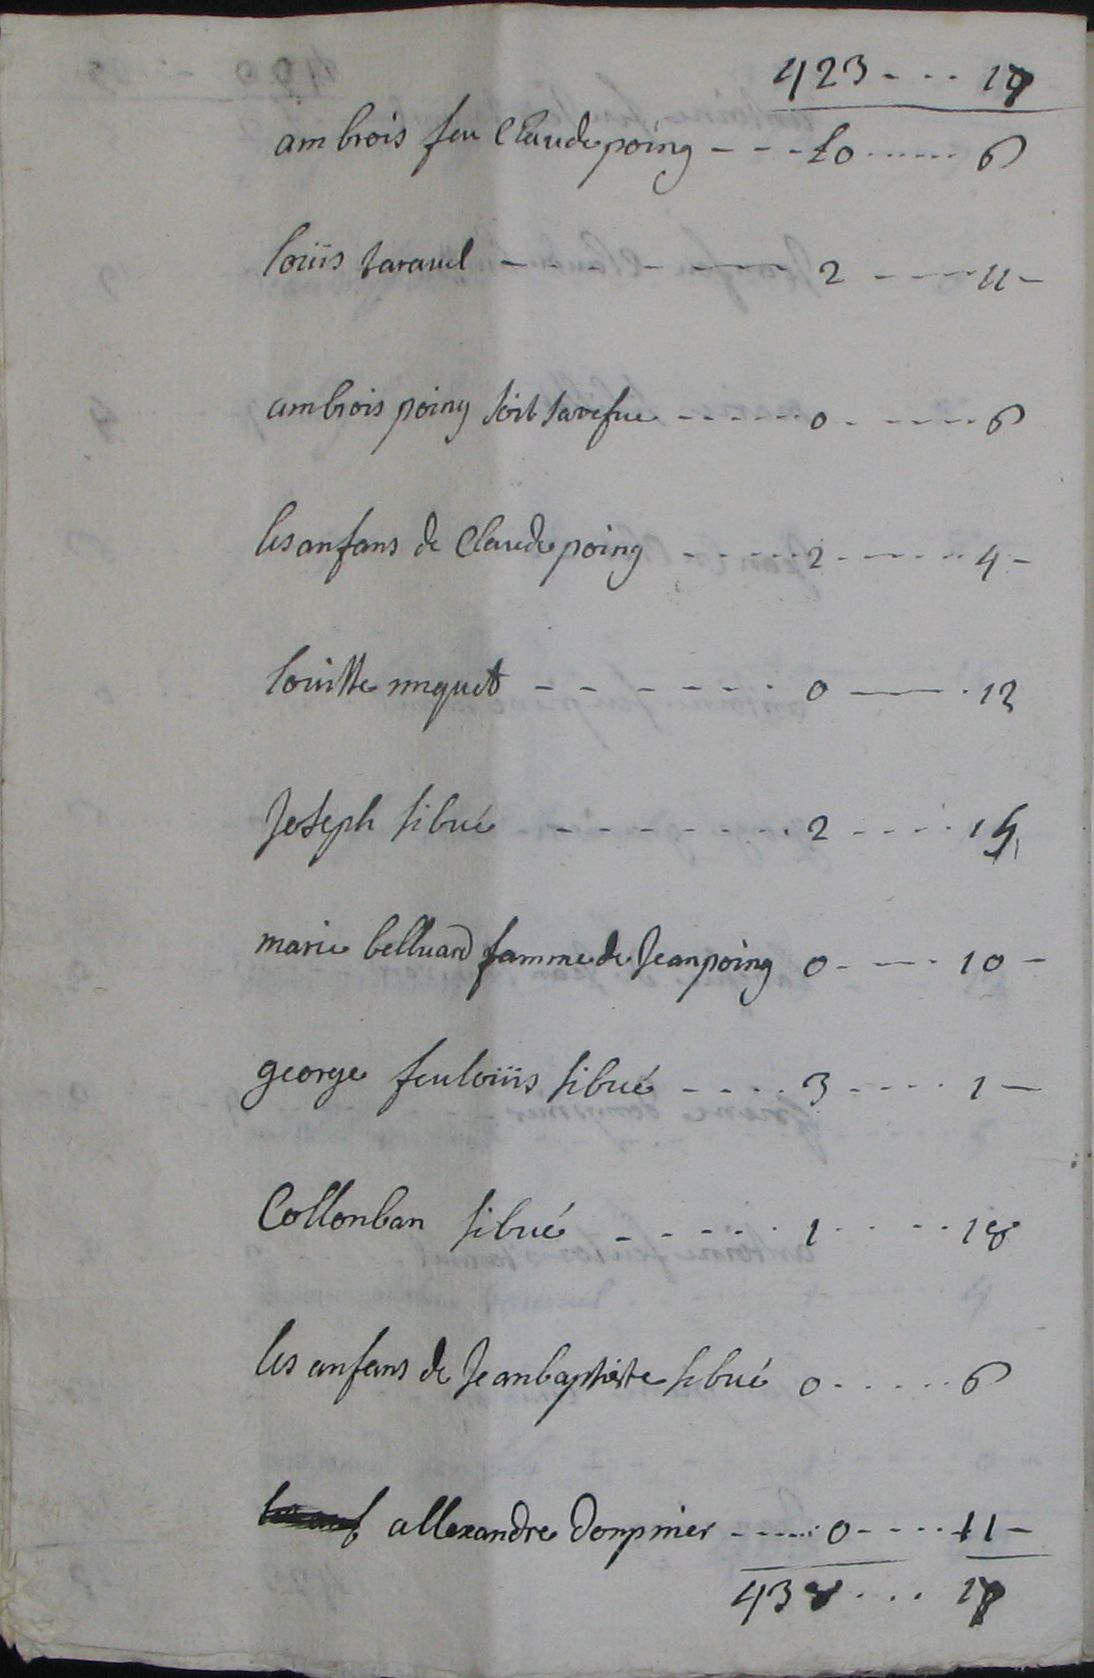 423 - - - 17
ambrois feu Claude poing - - - 0 ...... 6
loüis taravel - - - - - - 2 - - - - 11 -
ambrois poing soit sa vefue - - - - - - 0 - - - - - 6
les anfans de Claude poing - - - - - 2 - - - - - - 4 -
louitte miquet - - - - - - - 0 ——— 12
Joseph sibué - - - - - - - 2 - - - -
marie belluard famme de Jean poing 0 - — - 10 -
george feu loüis sibué - - - - 3 - - - - 1 —
Collonban sibué - - - - - - 1 - - - - 18
les anfans de Jean baptiste sibué 0 - - - - - 6
allexandre donpnier - - - - - 0 - - - - 11 -
438 - - - 17